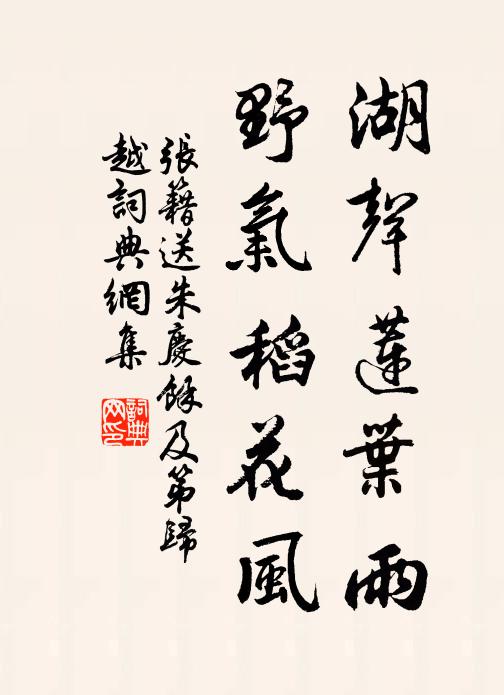 湖聲蓮葉雨
野氣稻花風
張籍送朱慶餘及第歸
越詞典網集
詞典網印